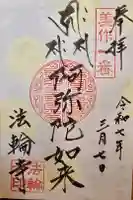 奉拝
美作一番
令和七年
三月七日
阿弥陀如来
法輪寺